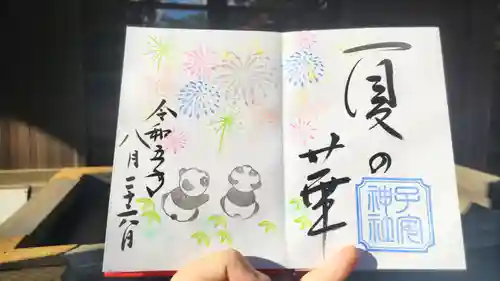 夏の
華
子安
神社
令和五年
八月二十六日